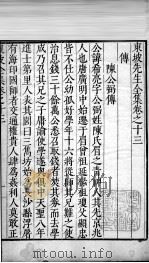 東坡先生全集卷之十三
傳
陳公弼傳
公諱希亮字公弼姓陳氏眉之青神人其先京兆
人也唐廣明中始遷于眉曾祖延祿祖瓊父顯忠
皆不仕公幼孤好學年十六將從師其兄難之使
治息錢三十餘萬公悉召取錢者焚其券而去學
成乃召其兄之子庸諭使學遂與俱中天聖八年
進士第里人表其閭曰三儁坊始為長沙縣浮屠
有海印國師者交通權貴人肆為姦利人莫敢